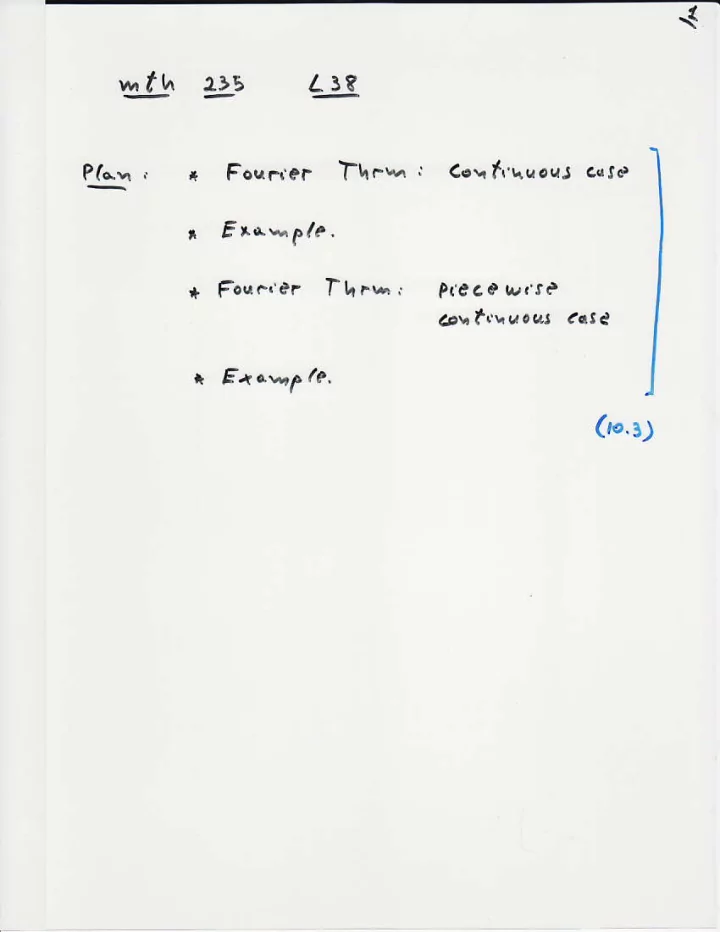 1
mth 235 L38
Plan: * Fourier Thrm: Continuous case
* Example.
* Fourier Thrm: Piecewise
continuous case
* Example.
(10.3)